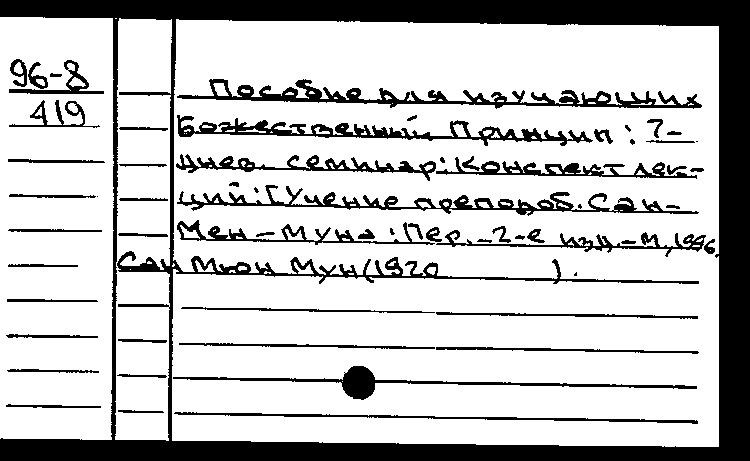 96-8
419
Пособие для изучающих
Божественный Принцип: 7-
днев. семинар: Конспект лек-
ций: [Учение преподоб. Сан-
Мен-Муна: Пер. - 2-е изд. - М., 1996.
Сан Мюн Мун (1920        ).